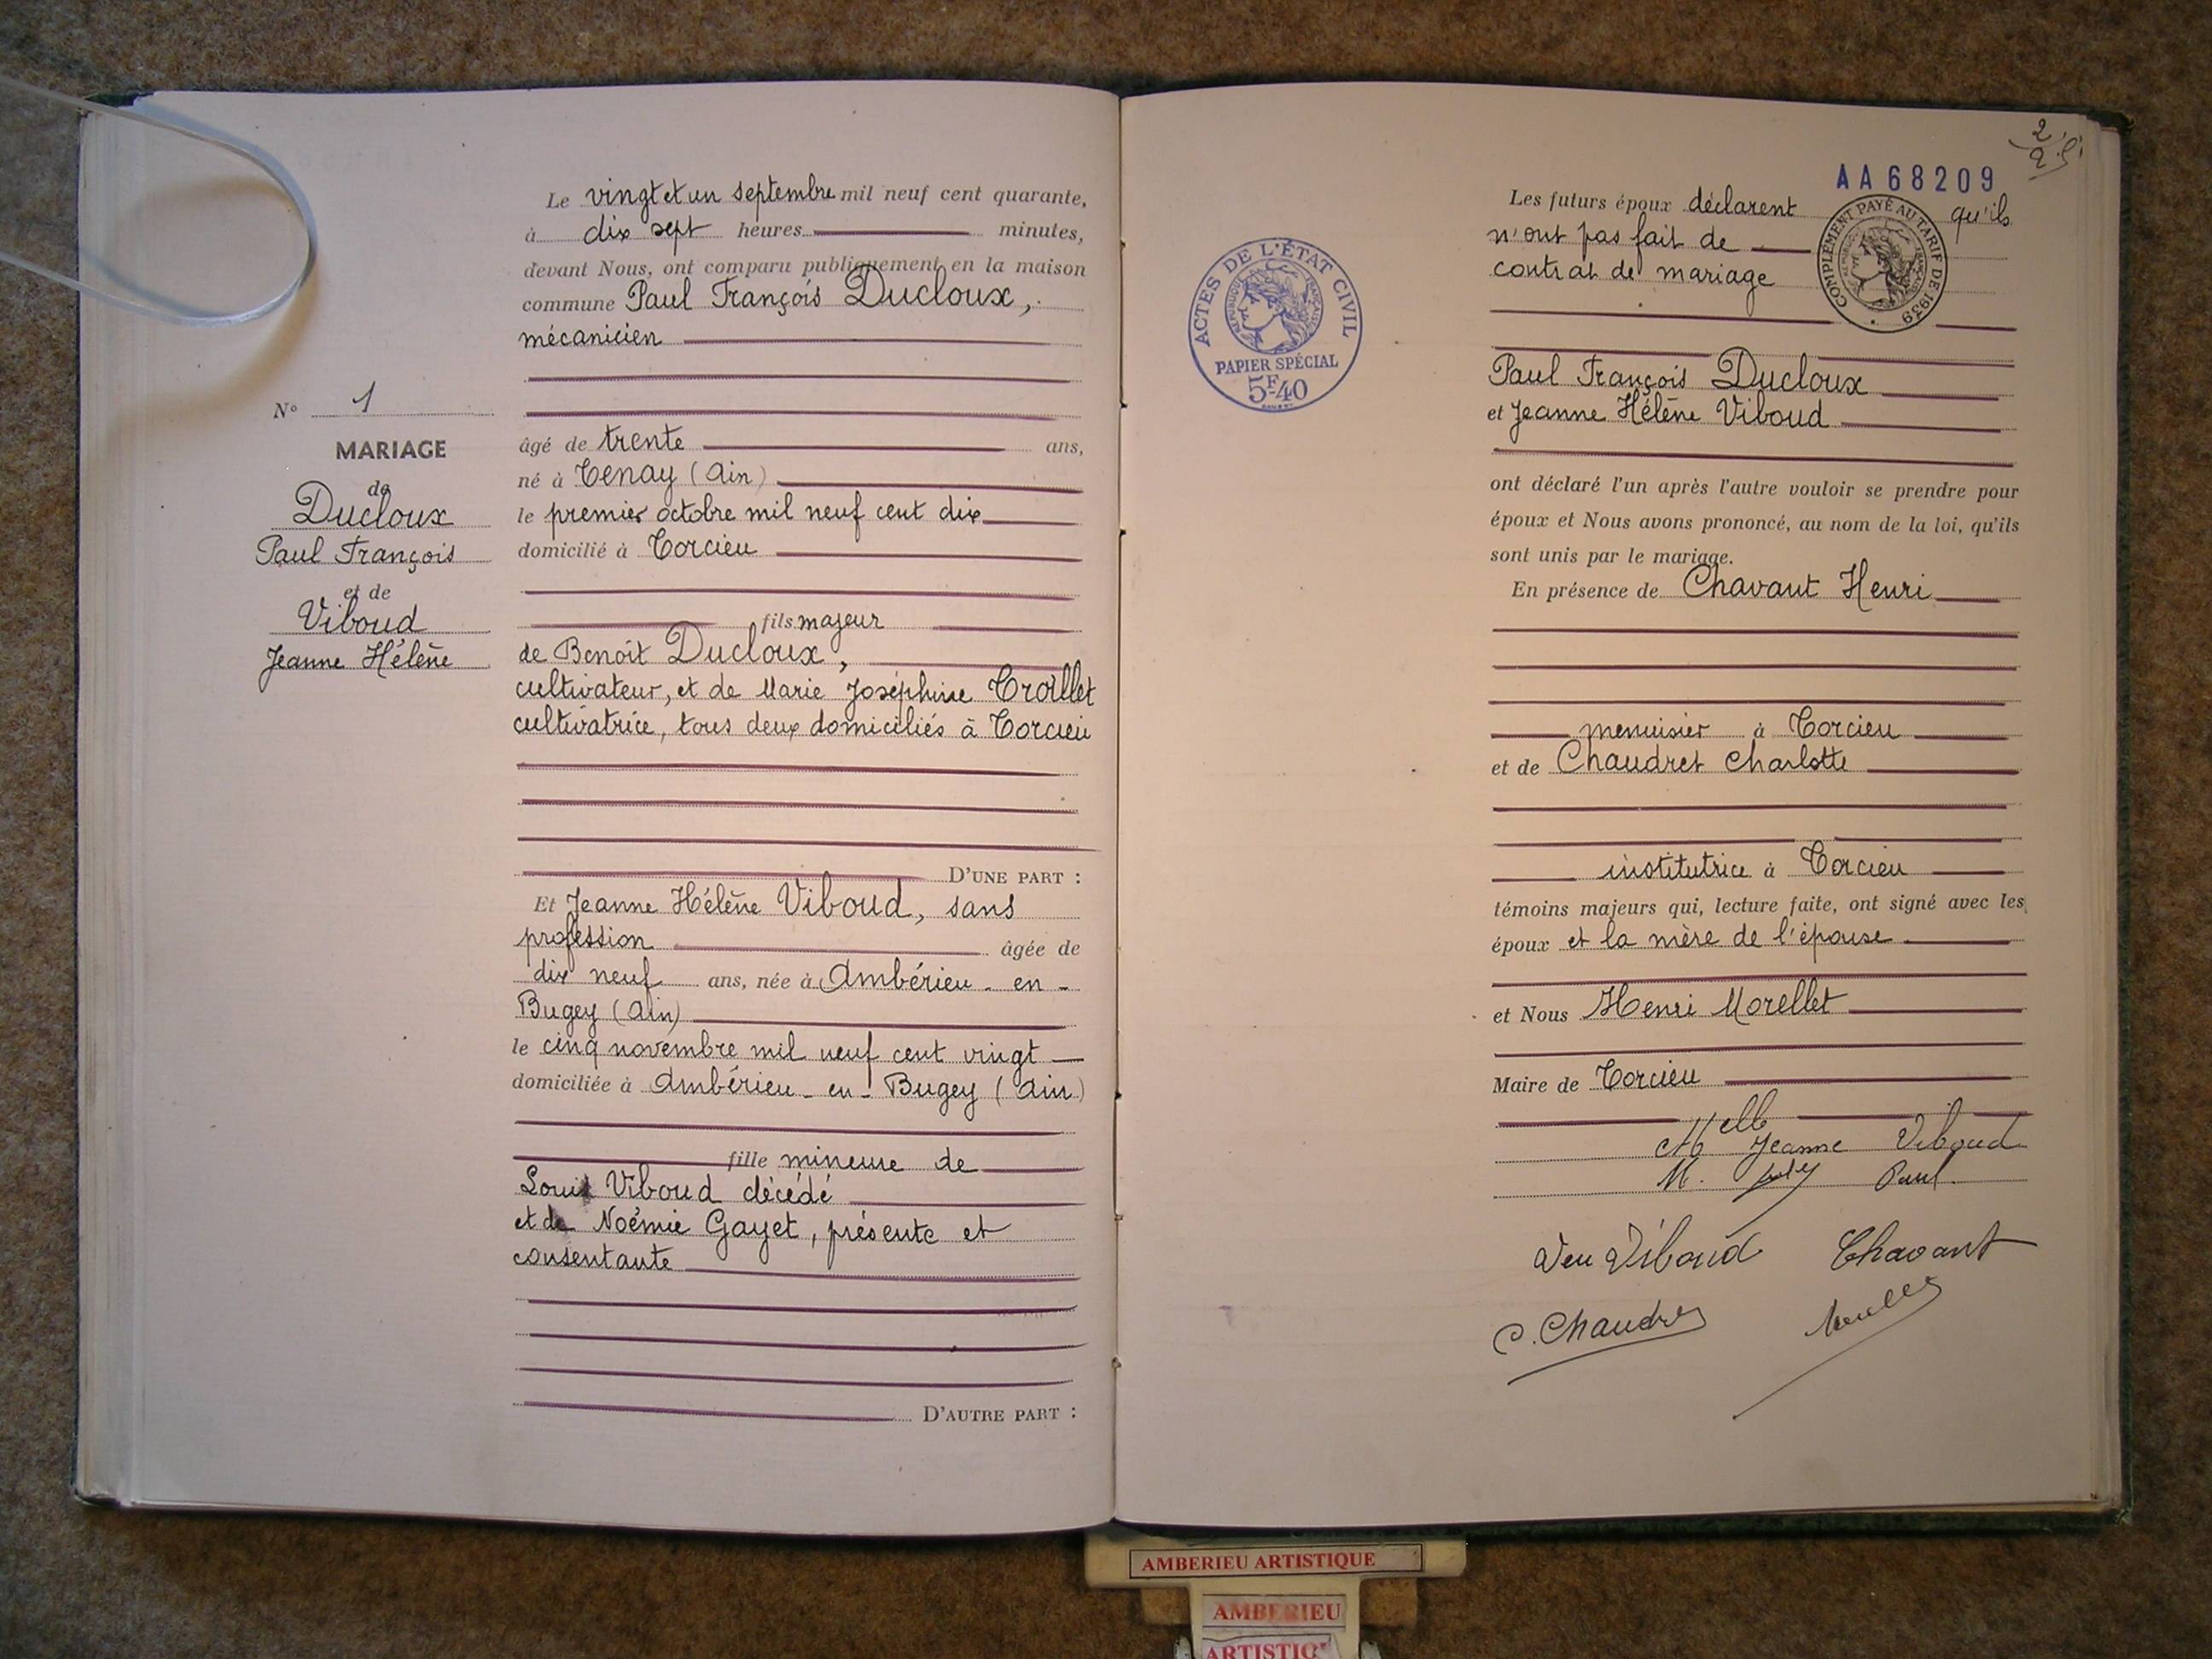 Le vingt et un septembre mil neuf cent quarante,
à dix sept heures minutes,
devant Nous, ont comparu publiquement en la maison
commune Paul François Ducloux,
mécanicien
N° 1
MARIAGE
de
Ducloux
Paul François
et de
Viboud
Jeanne Hélène
âgé de trente ans,
né à Tenay (Ain)
le premier octobre mil neuf cent dix
domicilié à Torcieu
fils majeur
de Benoît Ducloux,
cultivateur, et de Marie Joséphine Trollet
cultivatrice, tous deux domiciliés à Torcieu
D'UNE PART :
Et Jeanne Hélène Viboud, sans
profession âgée de
dix neuf ans, née à Ambérieu - en -
Bugey (Ain)
le cinq novembre mil neuf cent vingt
domiciliée à Ambérieu - en - Bugey (Ain)
fille mineure de
Louis Viboud décédé
et de Noémie Gayet, présente et
consentante
D'AUTRE PART :
ACTES DE L'ÉTAT CIVIL
RÉPUBLIQUE FRANÇAISE
PAPIER SPÉCIAL
5F40
2
2
AA68209
COMPLÉMENT PAYÉ AU TARIF DE 1939
Les futurs époux déclarent qu'ils
n'ont pas fait de
contrat de mariage
Paul François Ducloux
et Jeanne Hélène Viboud
ont déclaré l'un après l'autre vouloir se prendre pour
époux et Nous avons prononcé, au nom de la loi, qu'ils
sont unis par le mariage.
En présence de Chavant Henri
menuisier à Torcieu
et de Chaudret Charlotte
institutrice à Torcieu
témoins majeurs qui, lecture faite, ont signé avec les
époux et la mère de l'épouse.
et Nous Henri Morellet
Maire de Torcieu
Melle Jeanne Viboud
M. Paul
Veu Viboud Chavant
C. Chaudret
AMBERIEU ARTISTIQUE
AMBERIEU
ARTISTIQ